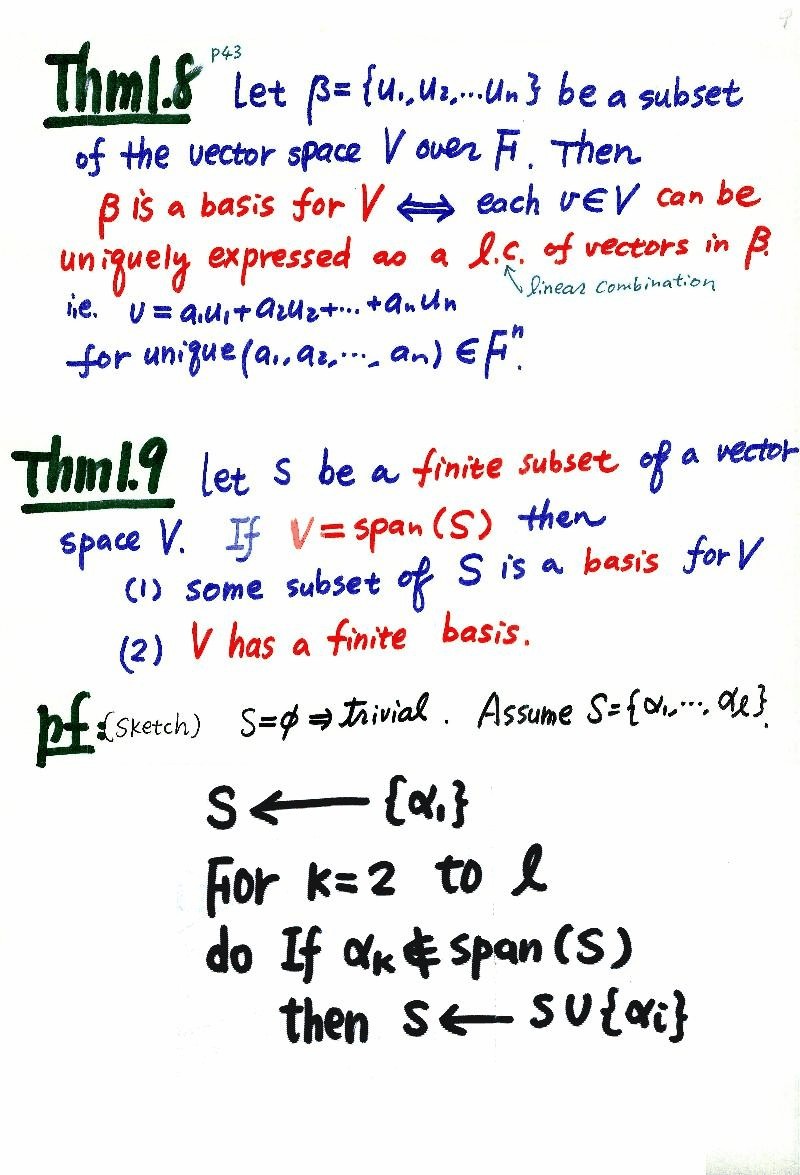 Thm1.8 P43 Let β={u₁,u₂,...uₙ} be a subset
of the vector space V over F. Then
β is a basis for V ⟺ each v∈V can be
uniquely expressed as a l.c. of vectors in β.
linear combination
i.e. v=a₁u₁+a₂u₂+...+aₙuₙ
for unique(a₁,a₂,...,aₙ)∈Fⁿ.
Thm1.9 Let S be a finite subset of a vector
space V. If V=span(S) then
(1) some subset of S is a basis for V
(2) V has a finite basis.
pf:(Sketch) S=ϕ⇒trivial. Assume S={α₁,...,αℓ}.
S⟵{α₁}
For k=2 to ℓ
do If αₖ∉span(S)
then S⟵S∪{αᵢ}